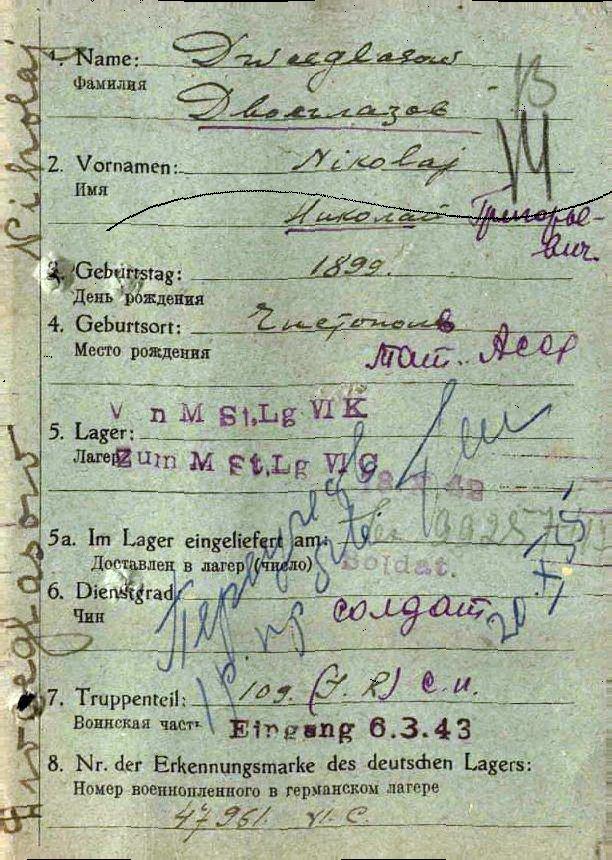 1. Name: Dwoeglasow
Фамилия
Двоеглазов
2. Vornamen: Nikolaj
Имя
Николай Григорье-
вич.
3. Geburtstag: 1899.
День рождения
4. Geburtsort: Чистополь
Место рождения
Тат. АССР
V n M St,Lg VI K
5. Lager:
Лагерь Zum M St,Lg VI C
5a. Im Lager eingeliefert am:
Доставлен в лагерь (число)
Soldat.
6. Dienstgrad:
Чин
солдат
7. Truppenteil: 109. (J. R.) с.п.
Воинская часть Eingang 6.3.43
8. Nr. der Erkennungsmarke des deutschen Lagers:
Номер военнопленного в германском лагере
47961. VI. C.
Dwoeglasow Nikolaj